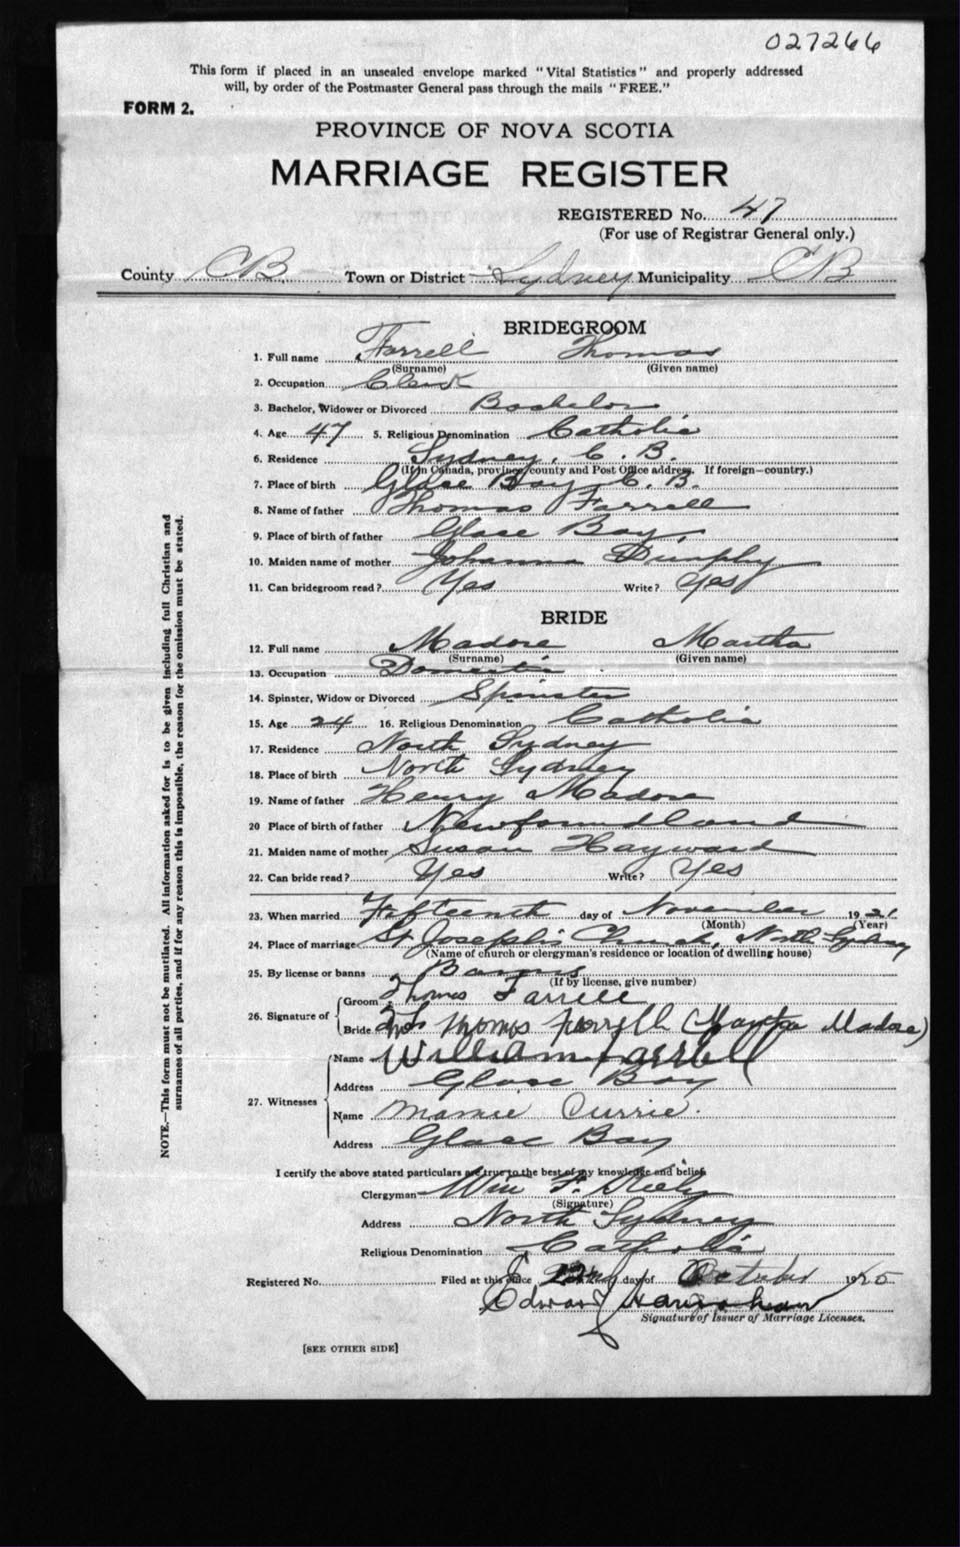 027266
This form if placed in an unsealed envelope marked "Vital Statistics" and properly addressed
will, by order of the Postmaster General pass through the mails "FREE."
FORM 2.
PROVINCE OF NOVA SCOTIA
MARRIAGE REGISTER
REGISTERED No. 47
(For use of Registrar General only.)
County CB Town or District Sydney Municipality CB
BRIDEGROOM
1. Full name Farrell Thomas
(Surname) (Given name)
2. Occupation Clerk
3. Bachelor, Widower or Divorced Bachelor
4. Age 47 5. Religious Denomination Catholic
6. Residence Sydney, C. B.
(If in Canada, province, county and Post Office address. If foreign—country.)
7. Place of birth Glace Bay C. B.
8. Name of father Thomas Farrell
9. Place of birth of father Glace Bay
10. Maiden name of mother Johanna Dunphy
11. Can bridegroom read? Yes Write? Yes
BRIDE
12. Full name Madore Martha
(Surname) (Given name)
13. Occupation Domestic
14. Spinster, Widow or Divorced Spinster
15. Age 24 16. Religious Denomination Catholic
17. Residence North Sydney
18. Place of birth North Sydney
19. Name of father Henry Madore
20 Place of birth of father Newfoundland
21. Maiden name of mother Susan Hayward
22. Can bride read? Yes Write? Yes
23. When married Fifteenth day of November 1921
(Month) (Year)
24. Place of marriage St Joseph's Church, North Sydney
(Name of church or clergyman's residence or location of dwelling house)
25. By license or banns Banns
(If by license, give number)
26. Signature of
Groom Thomas Farrell
Bride Mrs Thomas Farrell (Martha Madore)
27. Witnesses
Name William Farrell
Address Glace Bay
Name Mamie Currie.
Address Glace Bay
I certify the above stated particulars are true to the best of my knowledge and belief.
Clergyman Wm F. Kiely
(Signature)
Address North Sydney
Religious Denomination Catholic
Registered No. Filed at this office 22nd day of October 1925
Edward
Signature of Issuer of Marriage Licenses.
[SEE OTHER SIDE]
NOTE.—This form must not be mutilated. All information asked for is to be given including full Christian and
surnames of all parties, and if for any reason this is impossible, the reason for the omission must be stated.